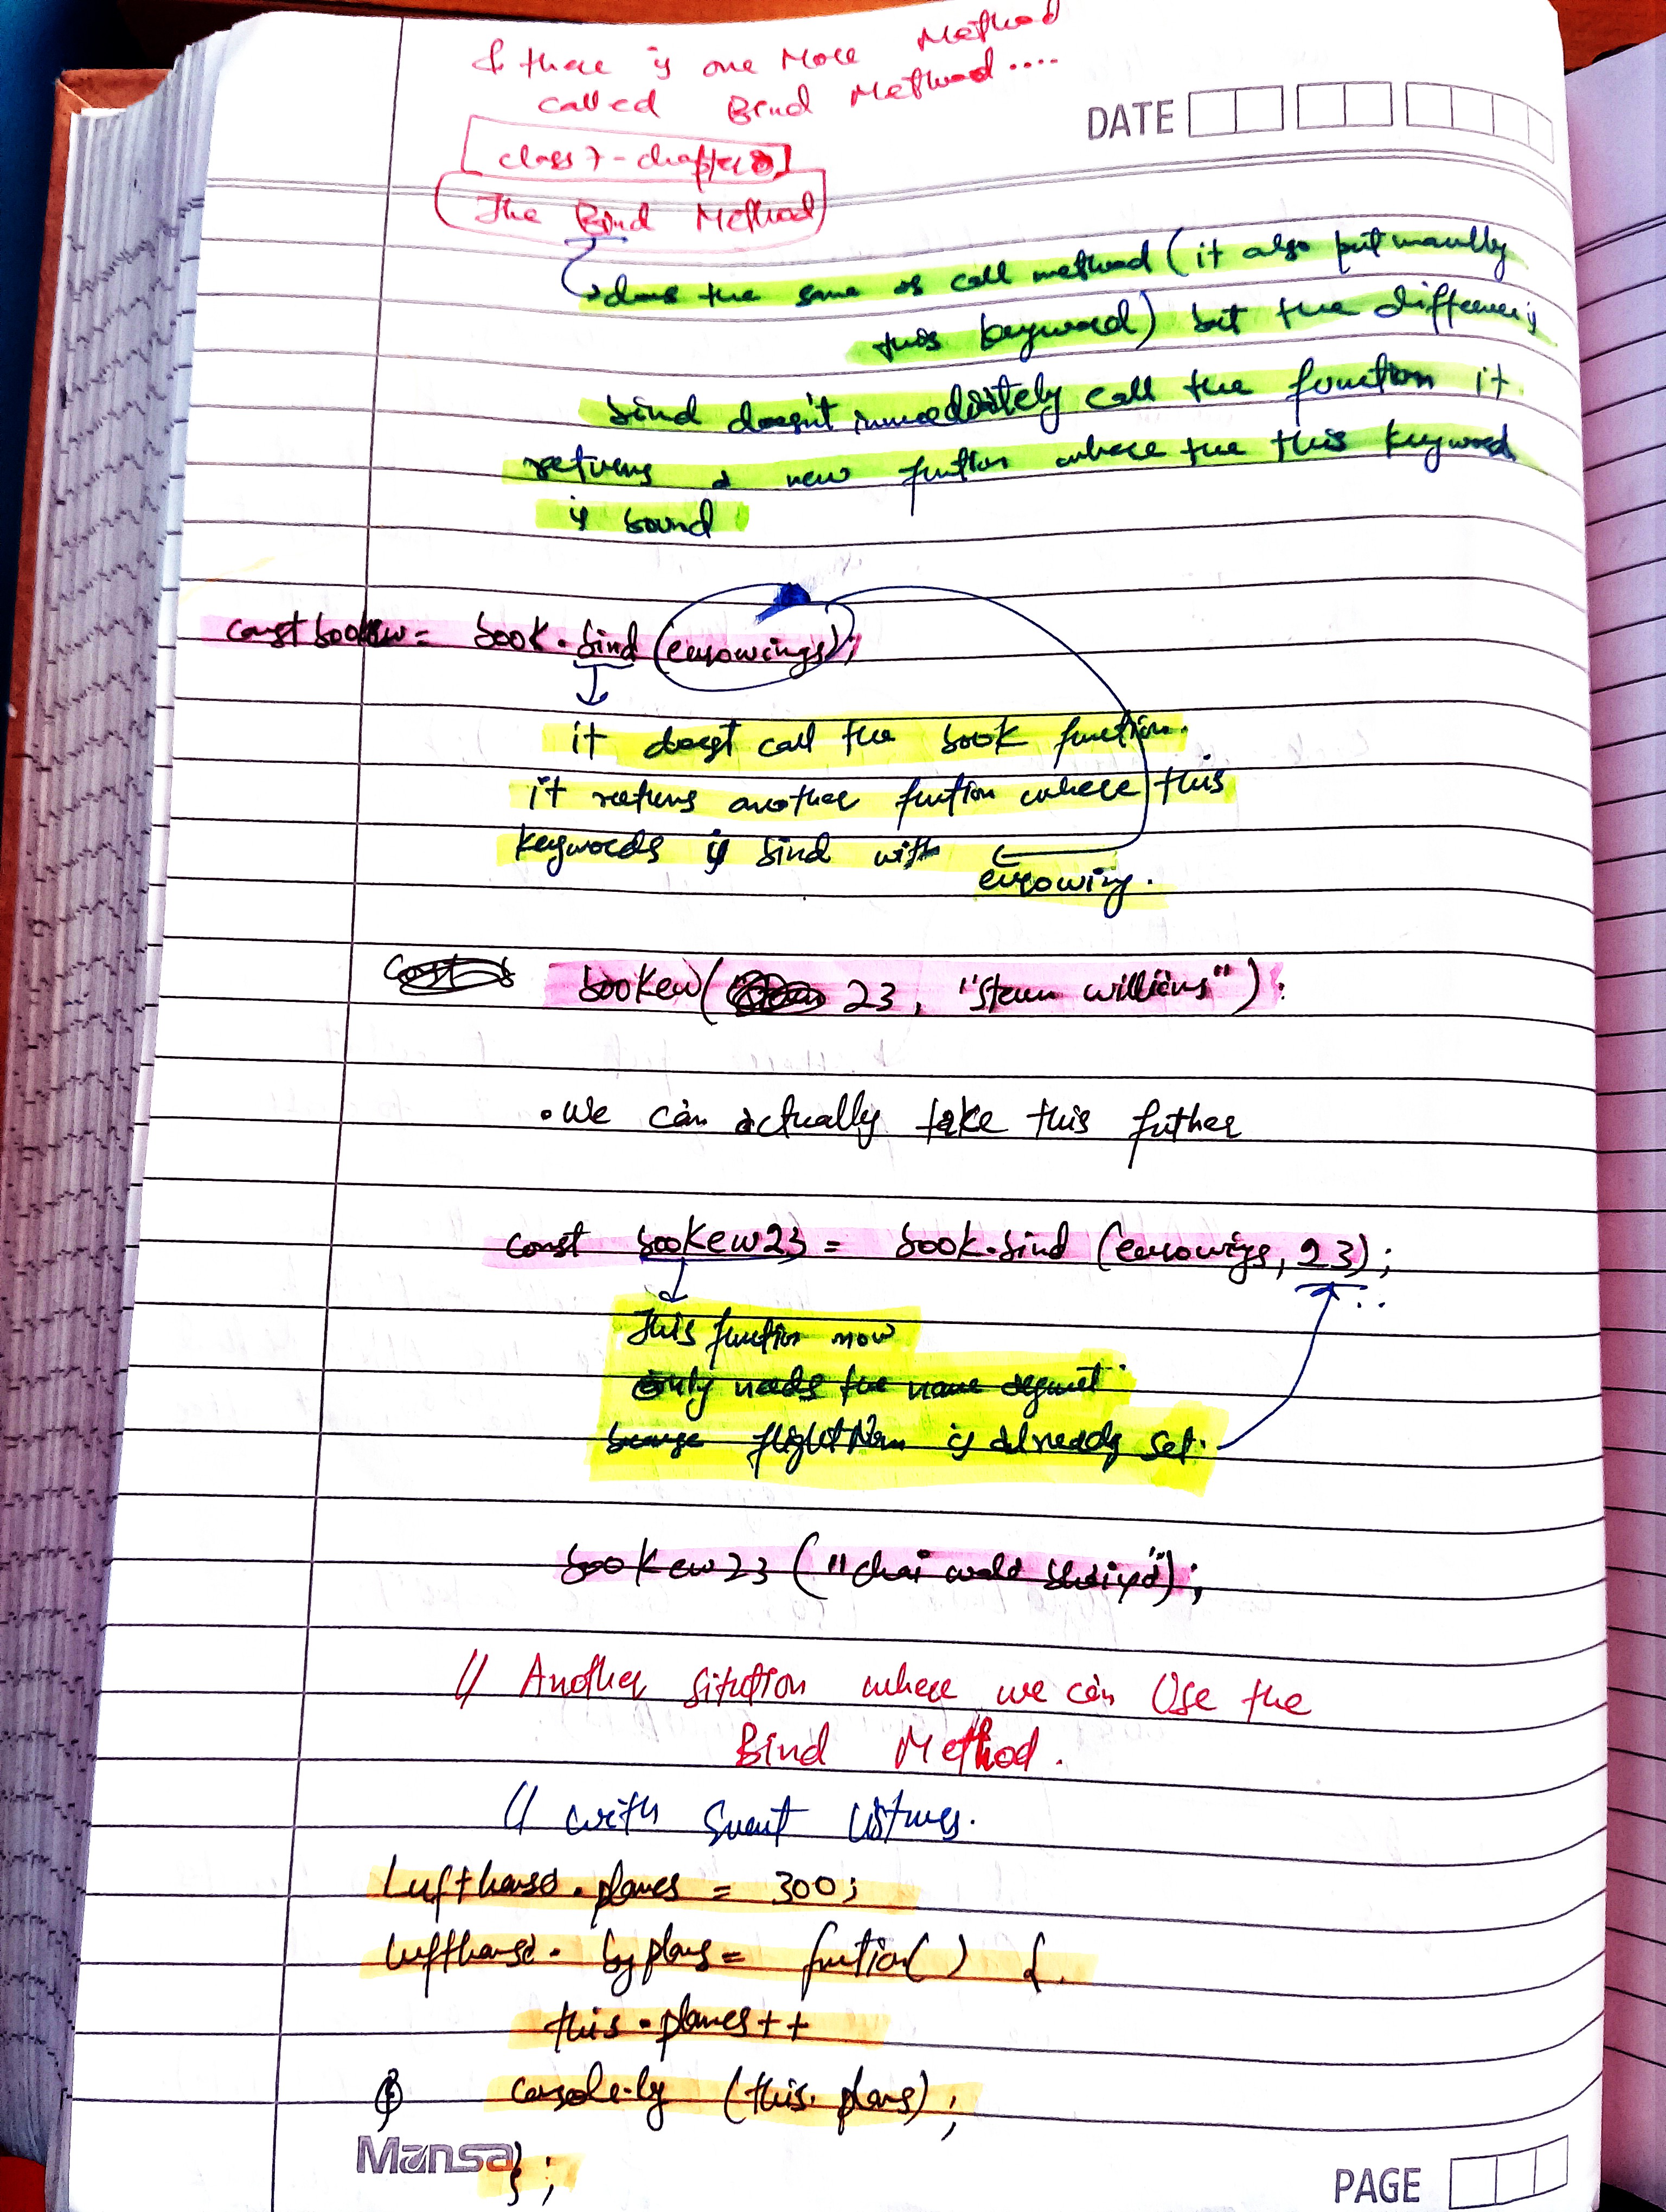 & there is one More Method
called Bind Method....
DATE
[class 7 - chapter 8]
The Bind Method
does the same as call method (it also put maully
this keyword) but the differen is
bind doesn't immediately call the function it
returns a new funtion where the this keyword
is bound
const bookew = book.bind (eurowings);
it doest call the book function.
it returns another funtion where this
keywords is bind with
eurowing.
bookew( 23, "Steven williams");
• We can actually take this futher
const bookew23 = book.bind (eurowigs, 23);
This function now
only needs the name
because flightNum is already set.
bookew23 ("chai wala bhaiya");
// Another sitution where we can Use the
Bind Method.
// with Event
Lufthansa.planes = 300;
lufthansa. = funtion() {
this.planes++
console.log (this.plans);
Mansa
};
PAGE